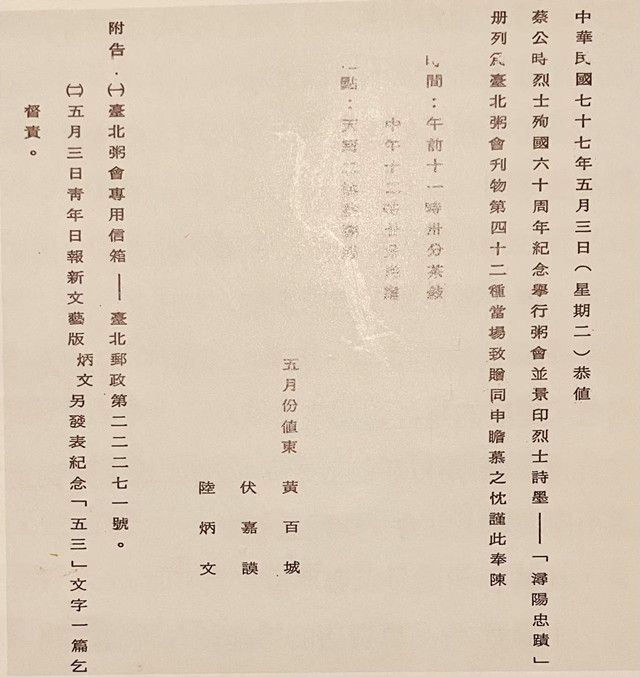 中華民國七十七年五月三日（星期二）恭值
蔡公時烈士殉國六十周年紀念舉行粥會並景印烈士詩墨——「潯陽忠蹟」
册列爲臺北粥會刋物第四十二種當場致贈同申瞻慕之忱謹此奉陳
時間：午前十一時卅分茶敍
中午十二時
點：天
五月份値東　黃百城
伏嘉謨
陸炳文
附告．㈠臺北粥會專用信箱——臺北郵政第二二二七一號。
㈡五月三日靑年日報新文藝版炳文另發表紀念「五三」文字一篇乞
督責。